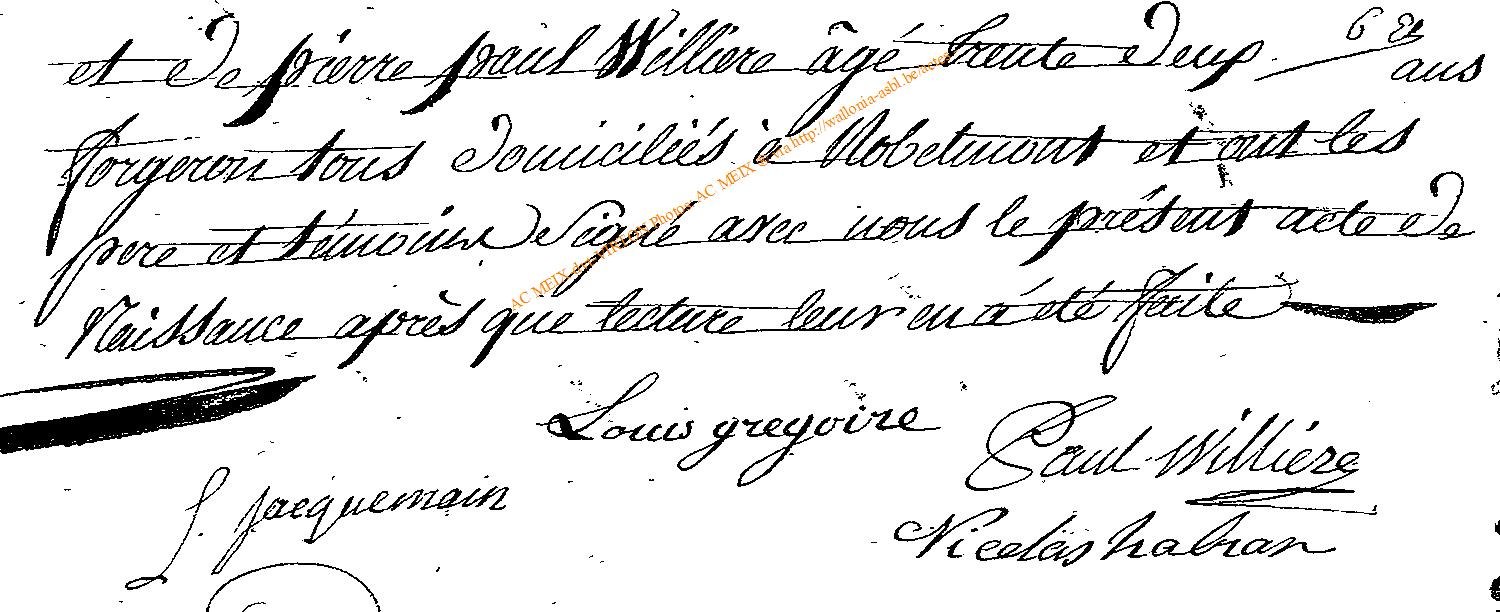 et de pierre paul Williere âgé trente deux 6 et ans
forgeron tous domiciliés à Robelmont et ont les
pere et témoins Signé avec nous le présent acte de
Naissance après que lecture leur en a été faite
Louis gregoire
Paul Williére
J. jacquemain
Nicolas habran
AC MEIX-dvt-VIRTON Photos AC MEIX via http://wallonia-asbl.be/actes